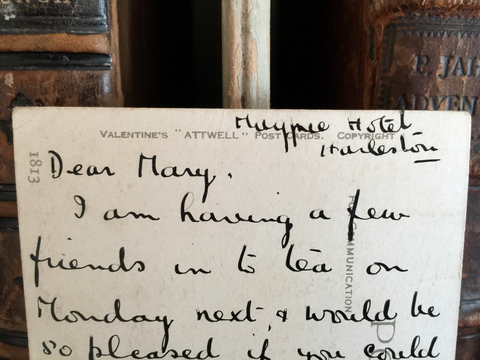 VALENTINE'S "ATTWELL" POST CARDS. COPYRIGHT
Magpie Hotel
Harleston
1813
Dear Mary.
I am having a few
friends in to tea on
Monday next, & would be
so pleased if you could
COMMUNICATION
P
P. JAH
ADVEN